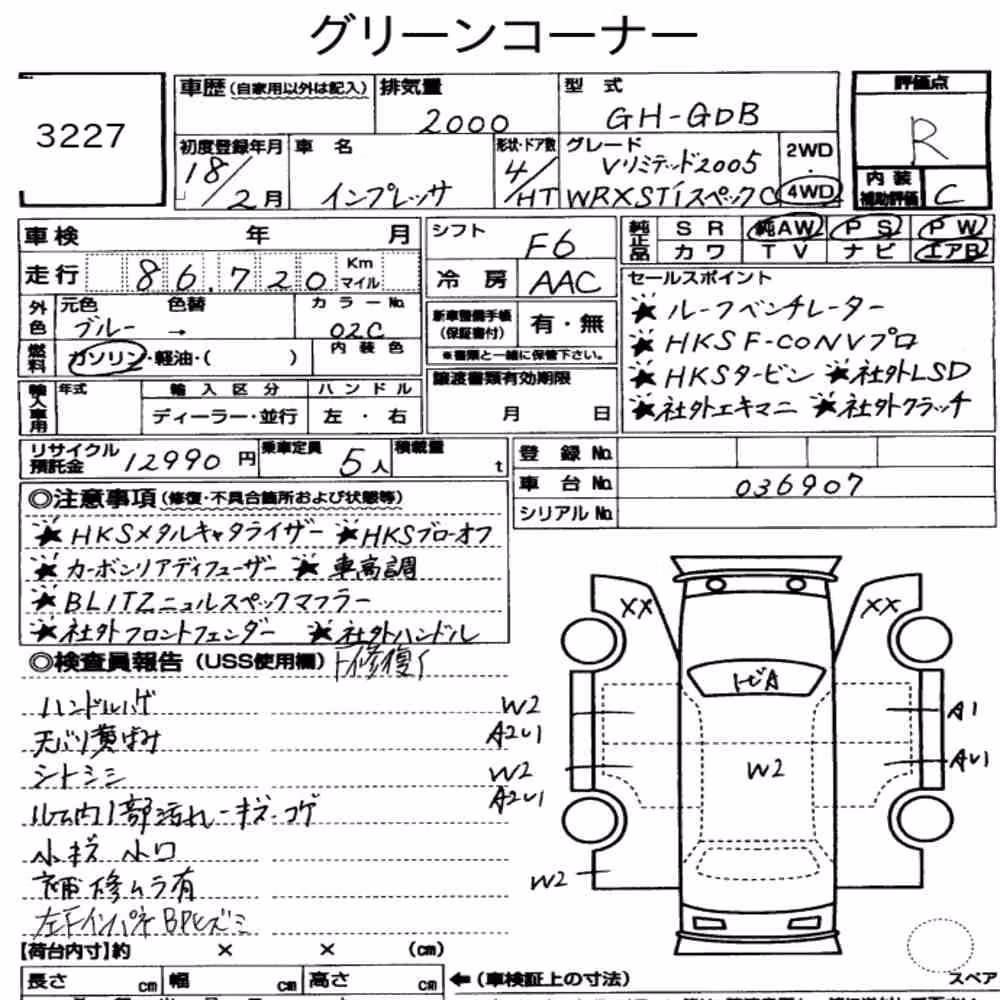 グリーンコーナー
3227
車歴(自家用以外は記入) 排気量 型式 評価点
2000 GH-GDB R
初度登録年月 車名 形状・ドア数 グレード 2WD
18/2月 インプレッサ 4/HT Vリミテッド2005 ・
WRX STiスペックC 4WD
内装補助評価 C
車検 年 月 シフト F6 純正品 SR 純AW PS PW
走行 86,720 Km マイル 冷房 AAC カワ TV ナビ エアB
外色 元色 色替 カラーNo. 新車整備手帳(保証書付) 有・無 セールスポイント
ブルー → 02C ★ルーフベンチレーター
燃料 ガソリン・軽油・( ) 内装色 ※書類と一緒に保管下さい。 ★HKS F-CONVプロ
輸入車用 年式 輸入区分 ハンドル 譲渡書類有効期限 ★HKSタービン ★社外LSD
ディーラー・並行 左・右 月 日 ★社外エキマニ ★社外クラッチ
リサイクル預託金 12990円 乗車定員 5人 積載量 t 登録No.
車台No. 036907
シリアルNo.
◎注意事項(修復・不具合箇所および状態等)
★HKSメタルキャタライザー ★HKSブローオフ
★カーボンリアディフューザー ★車高調
★BLITZニュルスペックマフラー
★社外フロントフェンダー ★社外ハンドル
◎検査員報告(USS使用欄)
ハンドルハゲ
天バリ黄ばみ
シトシミ
ルーム内1部汚れ・キズ・コゲ
小キズ 小凹
補修ムラ有
XX XX
トビA
W2 A1
A2U1
W2 W2 AU1
A2U1
W2
【荷台内寸】約 × × (cm)
長さ cm 幅 cm 高さ cm ←(車検証上の寸法) スペア